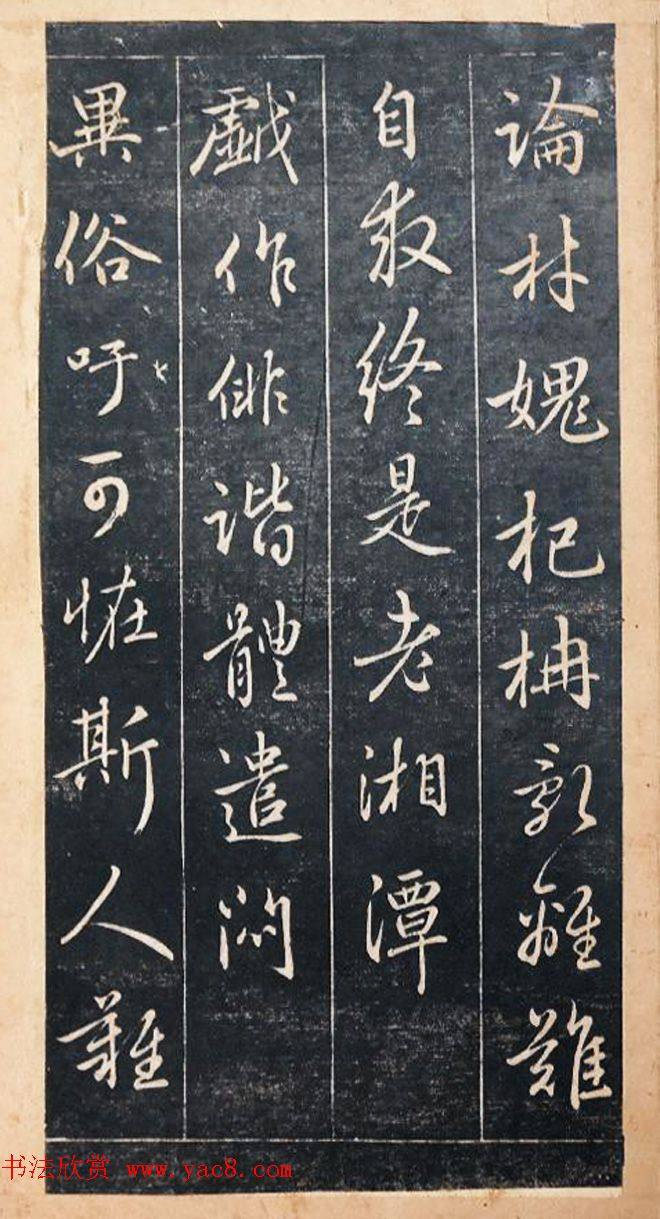 論材媿杞柟亂離難
自救終是老湘潭
戱作俳諧體遣悶
異俗吁可恠斯人難
书法欣赏 www.yac8.com